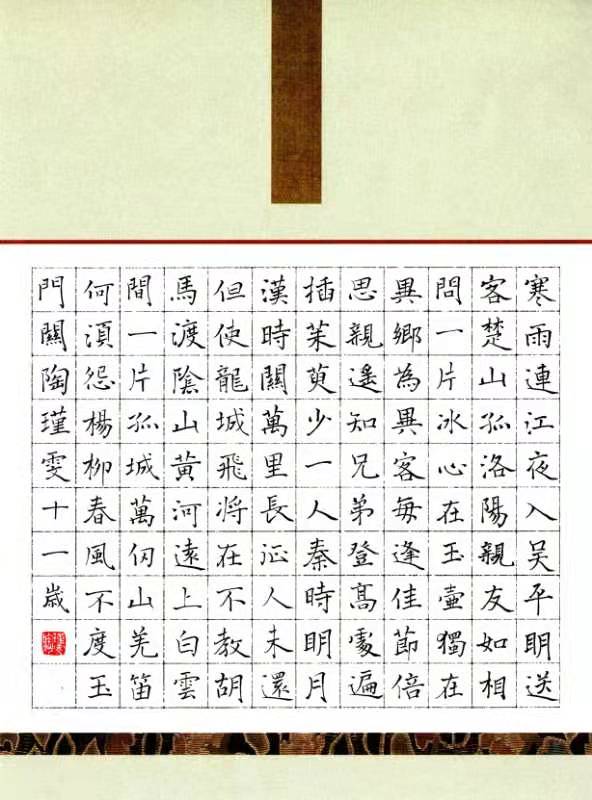 寒雨連江夜入吴平明送
客楚山孤洛陽親友如相
問一片冰心在玉壺獨在
異鄉為異客每逢佳節倍
思親遙知兄弟登高處遍
插茱萸少一人秦時明月
漢時關萬里長征人未還
但使龍城飛將在不教胡
馬渡陰山黃河遠上白雲
間一片孤城萬仞山羌笛
何須怨楊柳春風不度玉
門關陶瑾雯十一歲